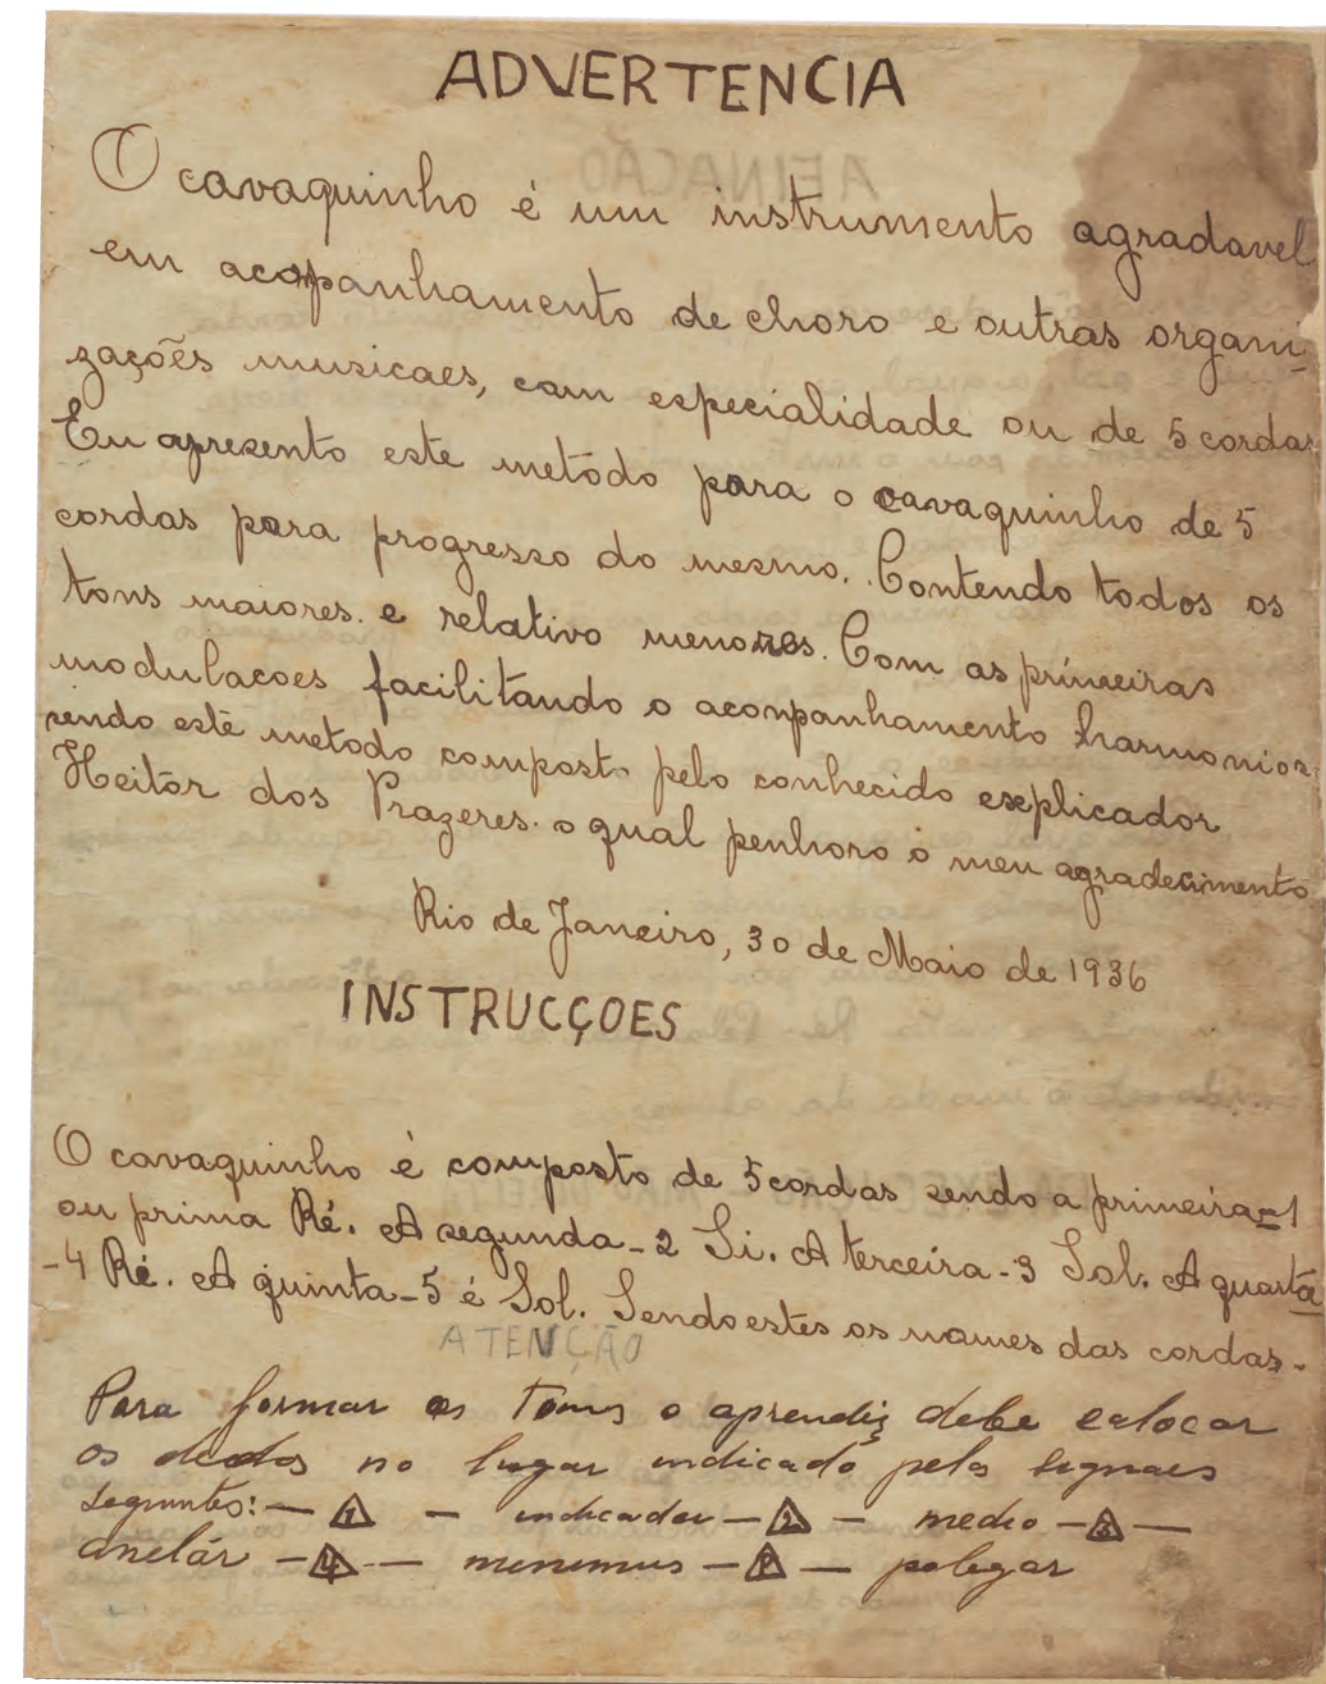 ADVERTENCIA
O cavaquinho é um instrumento agradavel
em acompanhamento de choro e outras organi-
zações musicaes, com especialidade ou de 5 cordas
Eu apresento este metodo para o cavaquinho de 5
cordas para progresso do mesmo. Contendo todos os
tons maiores. e relativo menores. Com as primeiras
modulacoes facilitando o aconpanhamento harmonios
sendo este metodo composto pelo conhecido explicador
Heitor dos Prazeres. o qual penhoro o meu agradecimento
Rio de Janeiro, 30 de Maio de 1936
INSTRUCÇOES
O cavaquinho é composto de 5 cordas sendo a primeira-1
ou prima Ré. A segunda-2 Si. A terceira-3 Sol. A quarta
-4 Ré. A quinta-5 é Sol. Sendo estes os nomes das cordas-
ATENÇÃO
Para formar os Tons o aprendiz debe colocar
os dedos no lugar indicado pelos signaes
seguintes:— 1 — indicador — 2 — medio — 3 —
anelár — 4 — menimus — P — polegar